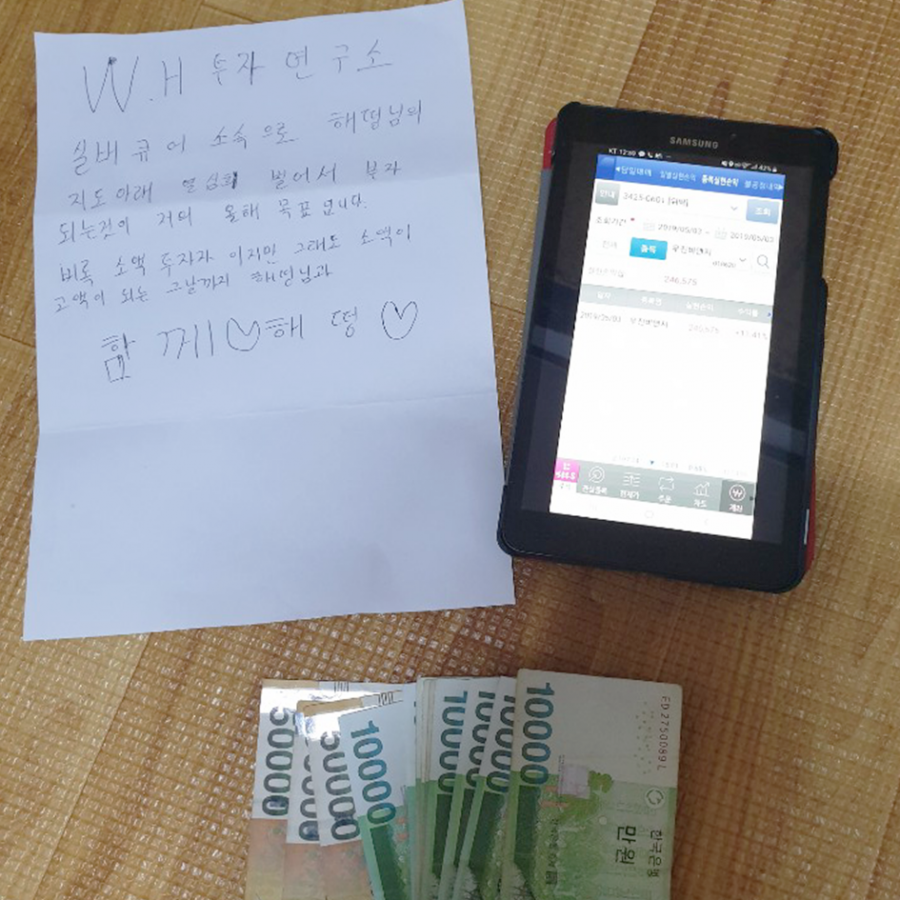 W.H 투자 연구소
실버 큐어 소속으로 해떵님의
지도아래 열심히 벌어서 부자
되는것이 저의 올해 목표 입니다.
비록 소액 투자자 이지만 그래도 소액이
고액이 되는 그날까지 해떵님과
함께♡해떵♡
SAMSUNG
KT 12:50
당일매매 일별실현손익 종목실현손익
안내 조회
조회기간 2019/05/03 ~ 2019/05/03
전체 종목 우진비앤지
실현손익합 246,575
우진비앤지 246,575
관심종목 현재가 주문 차트 계좌
50000
50000
10000
10000
10000
10000
10000
ED 2750089 L
한국은행
만원